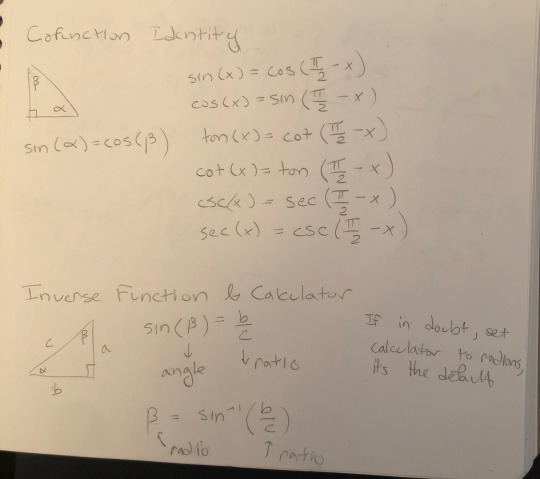 Cofunction Identity
β
α
sin(α)=cos(β)
sin(x) = cos(π/2 - x)
cos(x) = sin(π/2 - x)
tan(x) = cot(π/2 - x)
cot(x) = tan(π/2 - x)
csc(x) = sec(π/2 - x)
sec(x) = csc(π/2 - x)
Inverse Function & Calculator
c
β
a
α
b
sin(β) = b/c
↓ ↓ ratio
angle
β = sin⁻¹(b/c)
↖ radio ↑ ratio
If in doubt, set
calculator to radians,
its the default